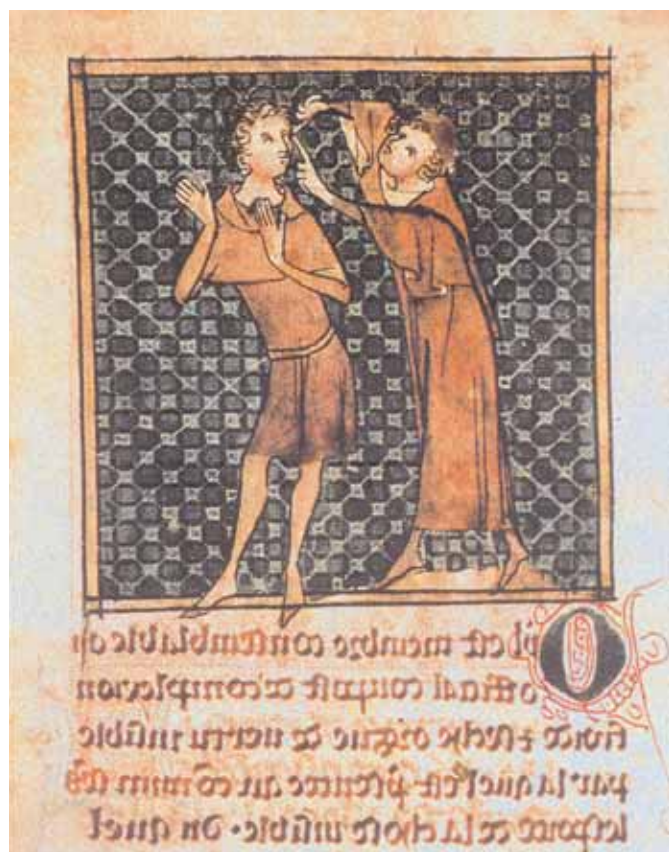 Oil est membre consemblable ou
official compost de complexion
froide seche origine de vertu visible
par la quel est presente au comun
lespece de la chose visible. Ou quel